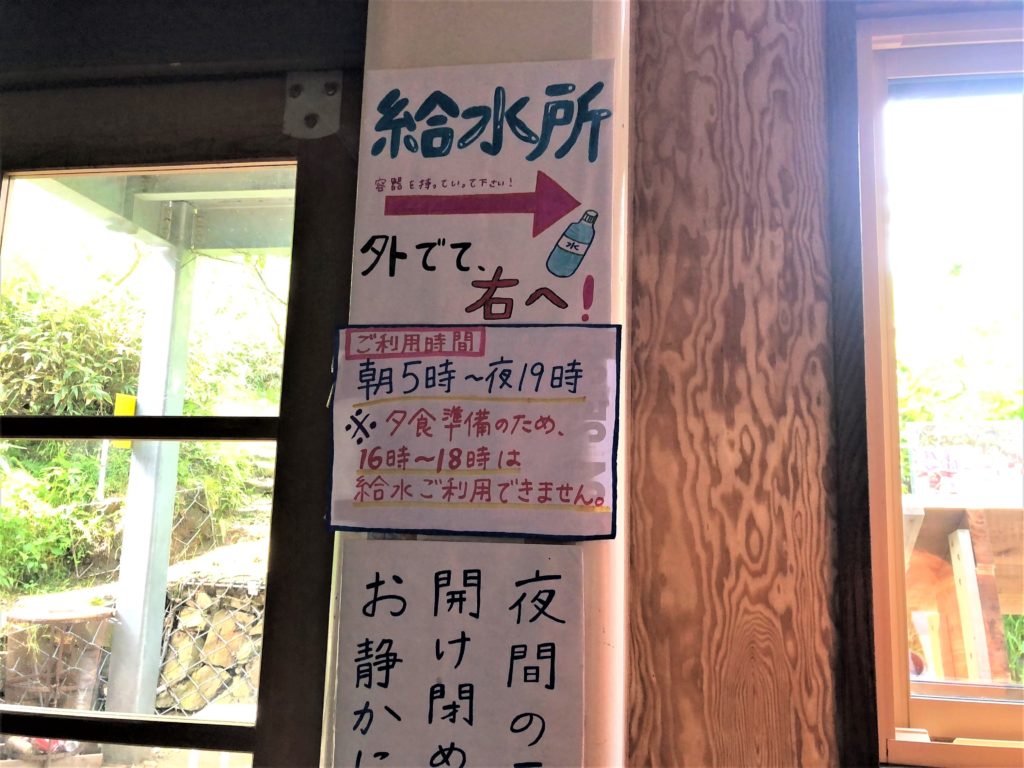 給水所
容器を持っていって下さい!
水
外でて、
右へ!
ご利用時間
朝5時~夜19時
※夕食準備のため、
16時~18時は
給水ご利用できません。
夜間の
開け閉め
お静かに